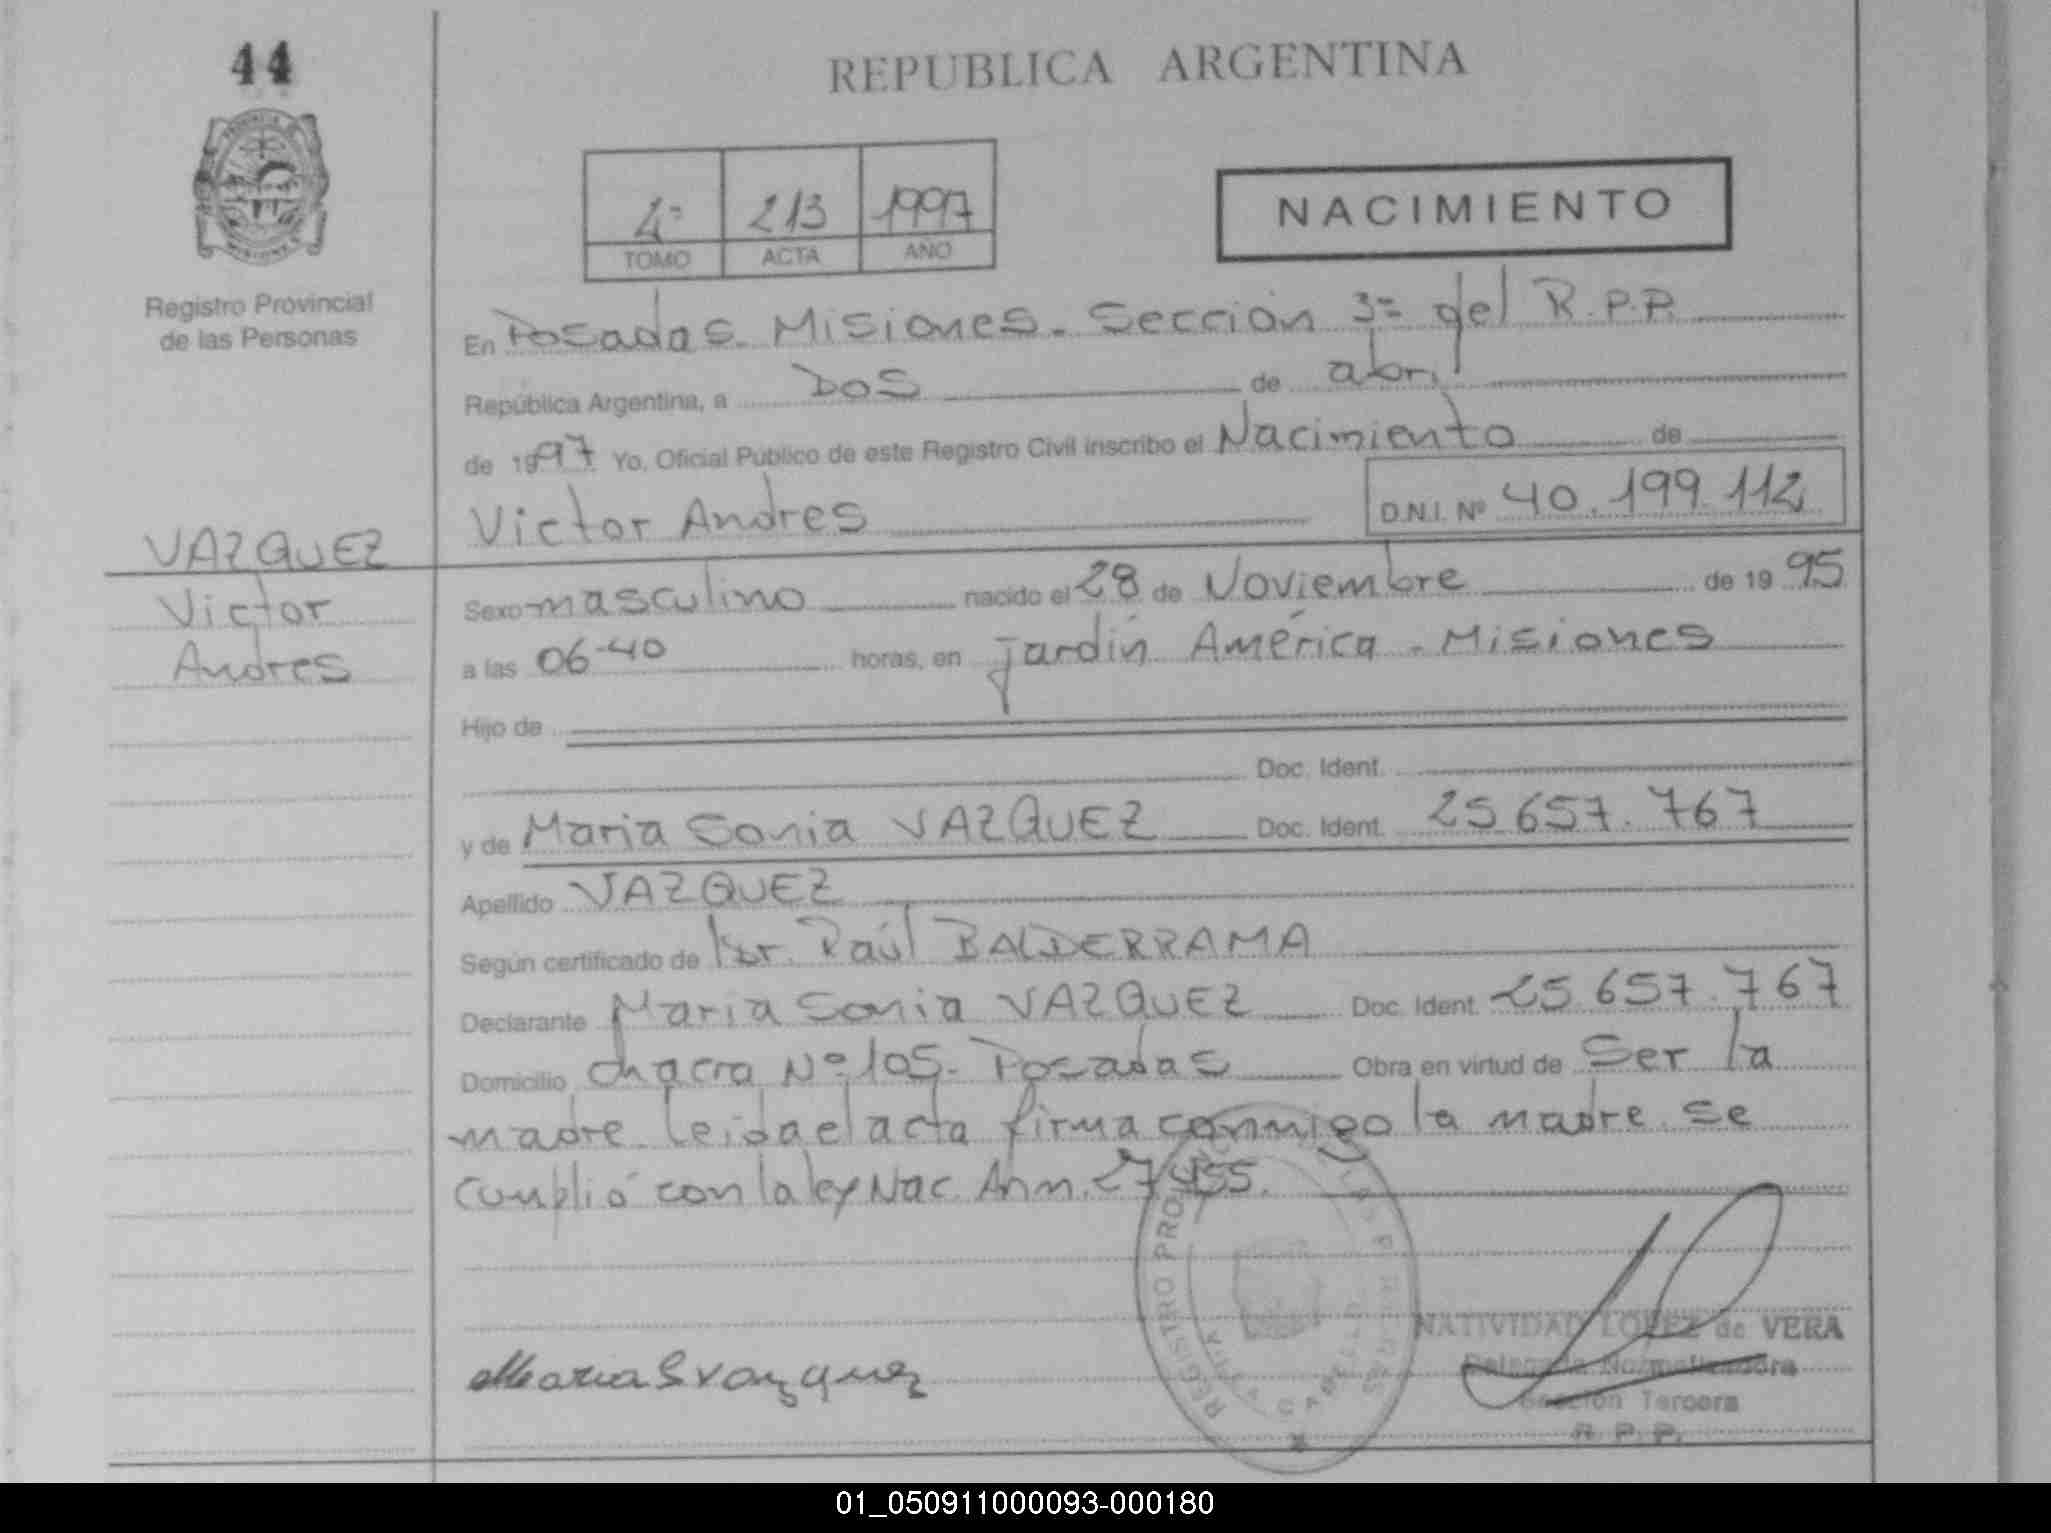 44
REPUBLICA ARGENTINA
PROVINCIA DE
MISIONES
4º 213 1997
TOMO ACTA AÑO
NACIMIENTO
Registro Provincial
de las Personas
En Posadas. Misiones. Sección 3ª del R.P.P.
República Argentina, a DOS de abril
de 1997 Yo, Oficial Público de este Registro Civil inscribo el Nacimiento de
Victor Andres D.N.I. Nº 40.199.112
VAZQUEZ
Victor
Andres
Sexo masculino nacido el 28 de Noviembre de 19 95
a las 06-40 horas, en Jardín América - Misiones
Hijo de
Doc. Ident.
y de Maria Sonia VAZQUEZ Doc. Ident. 25 657.767
Apellido VAZQUEZ
Según certificado de Dr. Raúl BALDERRAMA
Declarante Maria Sonia VAZQUEZ Doc. Ident. 25.657.767
Domicilio chacra Nº 105. Posadas Obra en virtud de Ser la
madre. leida el acta firma conmigo la madre. se
cumplió con la ley Nac. 455.
REGISTRO
Maria S Vazquez
NATIVIDAD LOPEZ de VERA
Delegada Normalizadora
Sección Tercera
R. P. P.
01_050911000093-000180